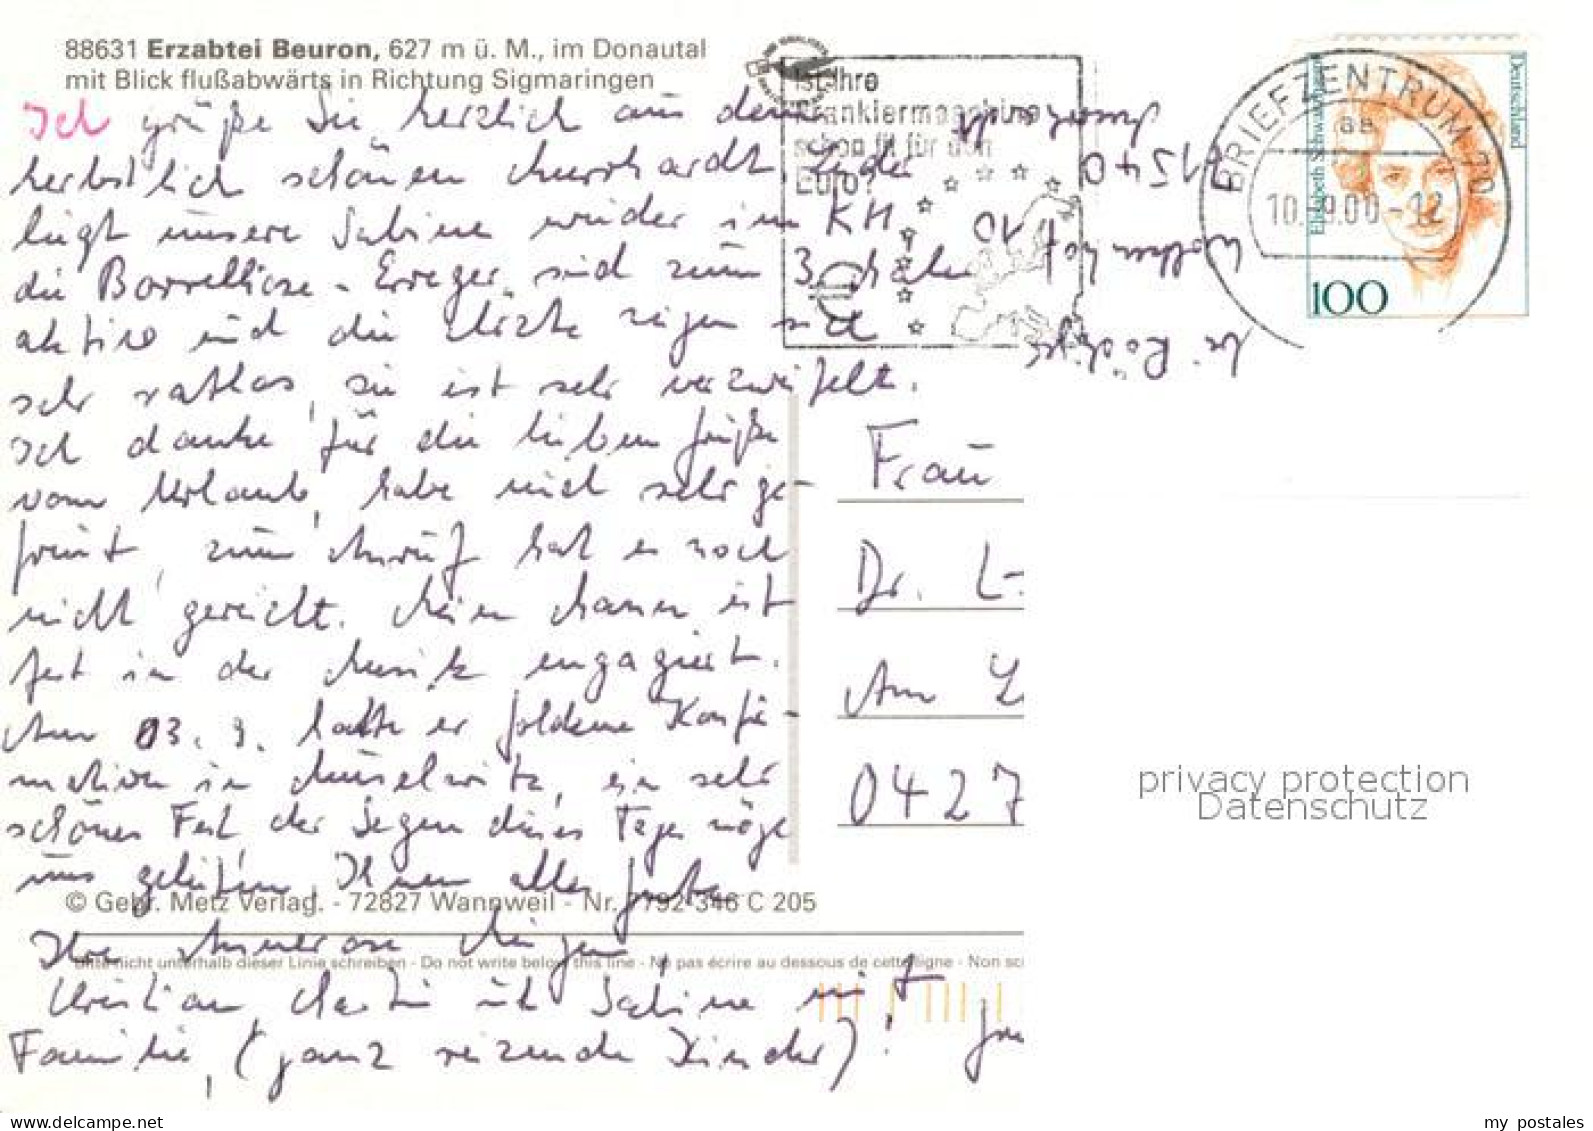 88631 Erzabtei Beuron, 627 m ü. M., im Donautal
mit Blick flußabwärts in Richtung Sigmaringen
Ist Ihre
Frankiermaschine
schon fit für den
Euro?
BRIEFZENTRUM 70
10.-9.00-12
Elisabeth Schwarzhaupt
Deutschland
100
Ich grüße Sie herzlich aus dem
herbstlich schönen Murrhardt. Leider
liegt unsere Sabine wieder im KH,
die Borrelliose-Erreger sind zum 3. Male
aktiv und die Ärzte zeigen sich
sehr ratlos, sie ist sehr verzweifelt.
Ich danke für die lieben Grüße
vom Urlaub, habe mich sehr ge-
freut, zum Anruf hat es noch
nicht gereicht. Mein Mann ist
fest in der Musik engagiert.
Am 03. 9. hatte er goldene Konfir-
mation in Meuselwitz, ein sehr
schönes Fest, der Segen dieses Tages möge
uns geleiten. Ihnen alles Gute
Ihre Annerose
Christian, Martin und Sabine mit
Familie, (ganz reizende Kinder)!
71540
Wolkenhof 10
Frau
Dr. L-
Am L
0427
© Gebr. Metz Verlag. - 72827 Wannweil - Nr. 7792 346 C 205
Bitte nicht unterhalb dieser Linie schreiben - Do not write below this line - Ne pas écrire au dessous de cette ligne - Non sc
privacy protection
Datenschutz
my postales